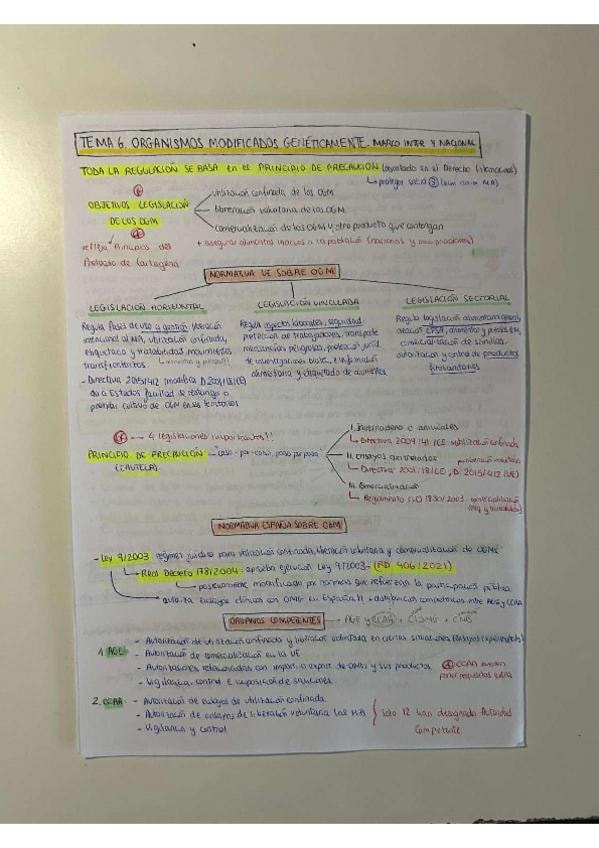 TEMA 6. ORGANISMOS MODIFICADOS GENÉTICAMENTE. MARCO INTER Y NACIONAL
TODA LA REGULACIÓN SE BASA en el PRINCIPIO DE PRECAUCIÓN (Derecho Internacional)
proteger salud
OBJETIVOS LEGISLACIÓN
DE LOS OGM
utilización confinada de los OGM
liberación voluntaria de los OGM
comercialización de los OGM y otro producto que contengan
+ asegurar alimentos inocuos a la población
refleja Principios del
Protocolo de Cartagena
NORMATIVA UE SOBRE OGM
LEGISLACIÓN HORIZONTAL
Regula
al MA, utilización confinada,
etiquetado y trazabilidad, movimientos
transfronterizos.
- Directiva 2015/412 (modifica D.2001/18/CE)
da a Estados facultad de restringir o
prohibir cultivo de OGM en sus territorios
LEGISLACIÓN VINCULADA
Regula aspectos laborales, seguridad,
protección de trabajadores, transporte
mercancías peligrosas, protección juríd.
de investigaciones
alimentaria y etiquetado de alimentos
LEGISLACIÓN SECTORIAL
Regula legislación alimentaria general,
creación EFSA, alimentos y piensos GM,
comercialización de semillas
autorización y control de productos
fitosanitarios
4 legislaciones importantes!!
PRINCIPIO DE PRECAUCIÓN
(CAUTELA)
"caso por caso, paso por paso"
I. Invernadero o animales
Directiva 2009/41/CE utilización confinada
II. Ensayos
Directiva 2001/18/CE, D. 2015/412 (UE)
III. Comercialización
Reglamento 1830/2003
NORMATIVA ESPAÑA SOBRE OGM
- Ley 9/2003: régimen jurídico para utilización confinada, liberación voluntaria y comercialización de OGMs
Real Decreto 178/2004: aprueba ejecución Ley 9/2003 (RD 406/2021)
posteriormente modificada por normas que refuerzan la participación pública
ensayos clínicos con OMG en España!! + distribución competencias entre AGE y CCAA
ÓRGANOS COMPETENTES → AGE y CCAA + CIOMG + CNB
1. AGE:
- Autorización de utilización confinada y liberación voluntaria en ciertas situaciones
- Autorización de comercialización en la UE
- Autorizaciones relacionadas con import. o export. de OMGs y sus productos.
- Vigilancia, control e imposición de sanciones.
CCAA pueden
poner requisitos extra
2. CCAA:
- Autorización de ensayos de utilización confinada.
- Autorización de ensayos de liberación voluntaria
- Vigilancia y control
Solo 12 han designado Autoridad
Competente